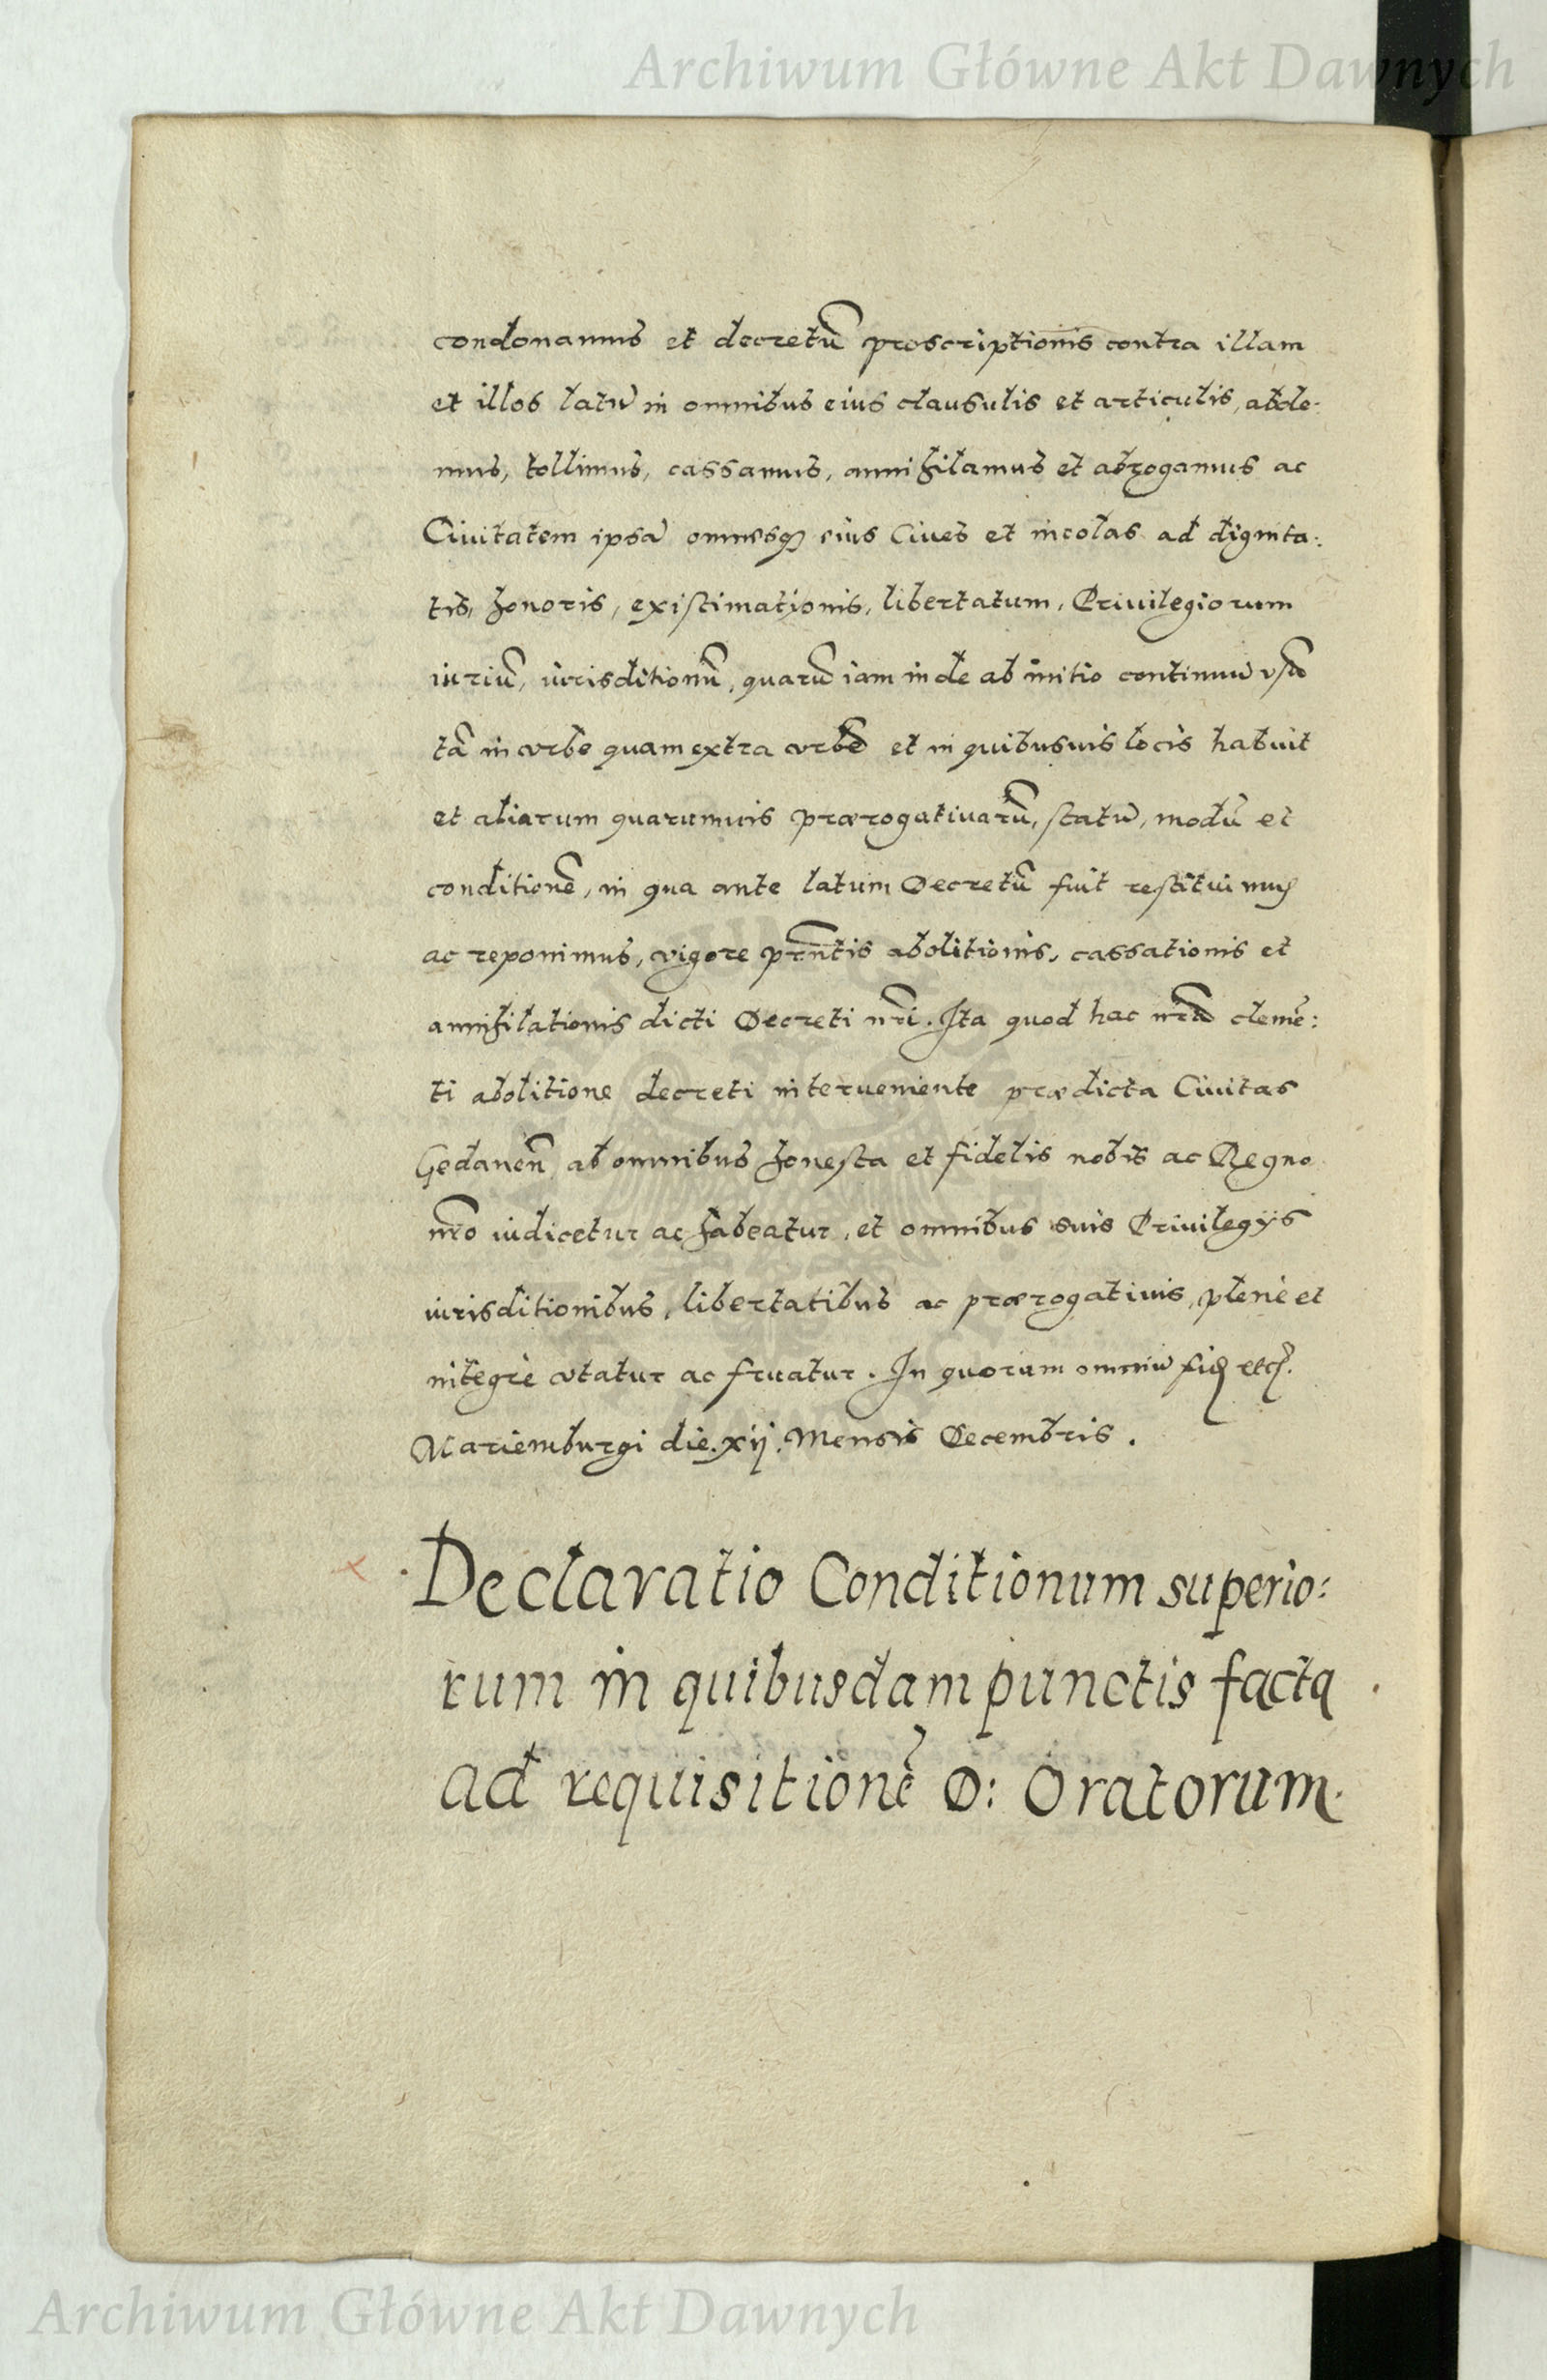 Archiwum Główne Akt Dawnych
condonamus et decretū proscriptionis contra illam
et illos latū in omnibus eius clausulis et articulis, abole-
mus, tollimus, cassamus, annihilamus et abrogamus ac
Ciuitatem ipsā omnesq₃ eius Ciues et incolas ad dignita:
tis, honoris, existimationis, libertatum, Priuilegiorum
iuriū, iurisditionū, quarū iam inde ab initio continuū vsū
tā in vrbe quam extra vrbē et in quibusuis locis habuit
et aliarum quarumuis prærogatiuarū, statū, modū et
conditionē, in qua ante latum Decretū fuit restituimus
ac reponimus, vigore pn̄tis abolitionis, cassationis et
annihilationis dicti Decreti nr̄i. Ita quod hac nr̄ā clemē:
ti abolitione decreti interueniente prædicta Ciuitas
Gedanen̄ ab omnibus honesta et fidelis nobis ac Regno
nr̄o iudicetur ac habeatur, et omnibus suis Priuilegijs
iurisditionibus, libertatibus ac prærogatiuis, plenè et
integrè vtatur ac fruatur. In quorum omniū fid₃ etc₃.
Mariemburgi die. xij. Mensis Decembris.
Declaratio Conditionum superio:
rum in quibusdam punctis facta
ad requisitionē D: Oratorum.
Archiwum Główne Akt Dawnych